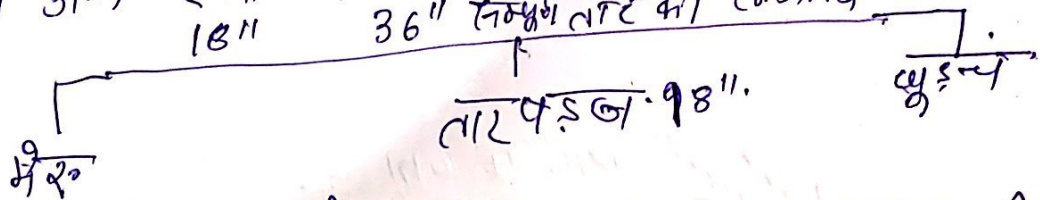 18" 36" सम्पूर्ण तार की
तार षड़ज. 18".
मेरू
घुड़च